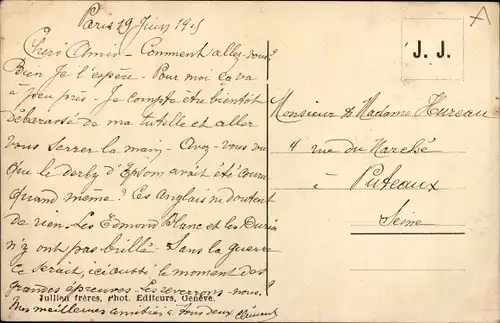 Paris 19 Juin 1915
Chers Amis - Comment allez-vous?
Bien Je l'espère. Pour moi ça va
à peu près - Je compte être bientôt
débarassé de ma tutelle et aller
vous serrer la main - Avez vous vu
que le derby d'Epsom avait été couru
quand même? Ces Anglais ne doutent
de rien. Les Edmond Blanc et les
n'y ont pas brillé. Sans la guerre
ce serait, ici aussi le moment des
grandes épreuves - Les reverrons-nous?
Mes meilleures amitiés à tous deux Clément
Jullien frères, Phot. Editeurs, Genève.
J. J.
Monsieur & Madame Hureau
4 rue du Marché
à Puteaux
Seine